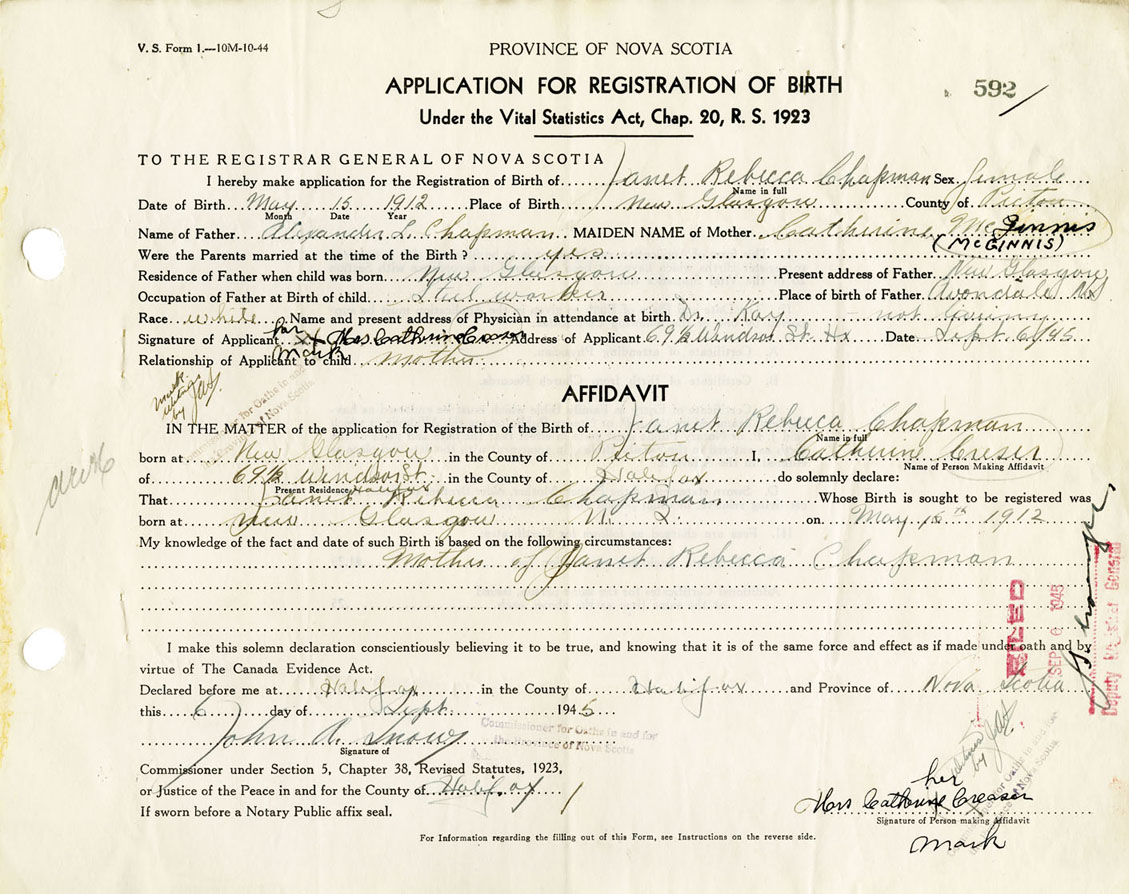 V. S. Form 1.—10M-10-44
PROVINCE OF NOVA SCOTIA
APPLICATION FOR REGISTRATION OF BIRTH
592
Under the Vital Statistics Act, Chap. 20, R. S. 1923
TO THE REGISTRAR GENERAL OF NOVA SCOTIA
I hereby make application for the Registration of Birth of Janet Rebecca Chapman Sex female
Name in full
Date of Birth May 15 1912 Place of Birth New Glasgow County of Pictou
Month Date Year
Name of Father Alexander L. Chapman MAIDEN NAME of Mother Catherine McGinnis
(McGINNIS)
Were the Parents married at the time of the Birth? yes
Residence of Father when child was born New Glasgow Present address of Father New Glasgow
Occupation of Father at Birth of child Steel worker Place of birth of Father Avondale NS
Race white Name and present address of Physician in attendance at birth Dr. Kay not living
her
Signature of Applicant X Mrs Catherine Creaser Address of Applicant 69½ Windsor St. Hx Date Sept 6/45
mark
Relationship of Applicant to child mother
mark
witness
by JAS
Commissioner for Oaths in and for
the Province of Nova Scotia
AFFIDAVIT
IN THE MATTER of the application for Registration of the Birth of Janet Rebecca Chapman
Name in full
born at New Glasgow in the County of Pictou I, Catherine Creser
Name of Person Making Affidavit
of 69½ Windsor St. in the County of Halifax do solemnly declare:
Present Residence Halifax
That Janet Rebecca Chapman Whose Birth is sought to be registered was
born at New Glasgow N. S. on May 15th 1912
My knowledge of the fact and date of such Birth is based on the following circumstances:
Mother of Janet Rebecca Chapman
I make this solemn declaration conscientiously believing it to be true, and knowing that it is of the same force and effect as if made under oath and by
virtue of The Canada Evidence Act.
Declared before me at Halifax in the County of Halifax and Province of Nova Scotia
this 6 day of Sept. 1945
Commissioner for Oaths in and for
the Province of Nova Scotia
John A. Snow
Signature of
Commissioner under Section 5, Chapter 38, Revised Statutes, 1923,
or Justice of the Peace in and for the County of Halifax
If sworn before a Notary Public affix seal.
FILED
SEP 6 1945
Deputy Registrar General
by JAS
Commissioner for Oaths in and for
the Province of Nova Scotia
her
Mrs Catherine Creaser
Signature of Person making Affidavit
mark
For Information regarding the filling out of this Form, see Instructions on the reverse side.